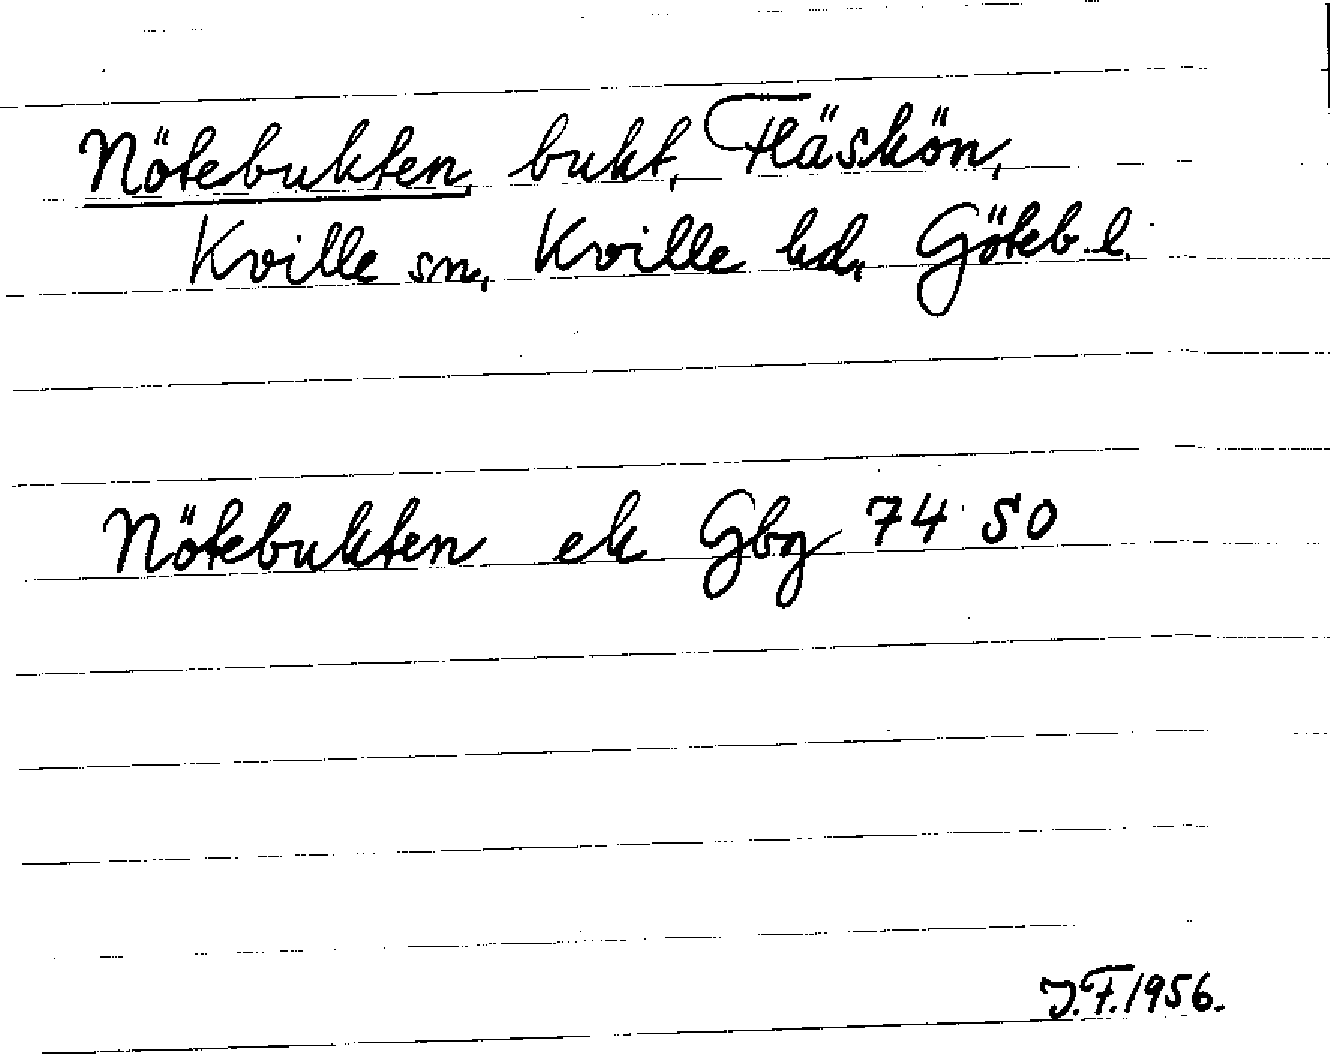 Nötebukten, bukt, Fläskön,
Kville sn, Kville hd, Göteb. l.
Nötebukten ek Gbg 74 SO
J.F. 1956.